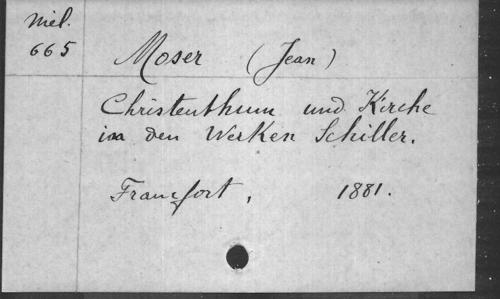 Mel.
665
Moser (Jean)
Christenthum und Kirche
in den Werken Schiller.
Francfort, 1881.